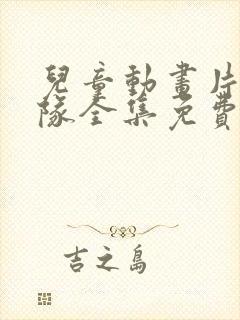 兒童動畫片
隊全集免費
吉之島